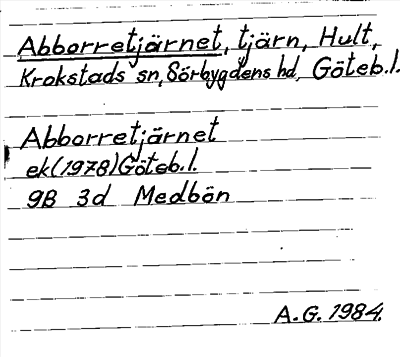 Abborretjärnet, tjärn, Hult,
Krokstads sn, Sörbygdens hd, Göteb.l.
Abborretjärnet
ek(1978)Göteb.l.
9B 3d Medbön
A.G. 1984.